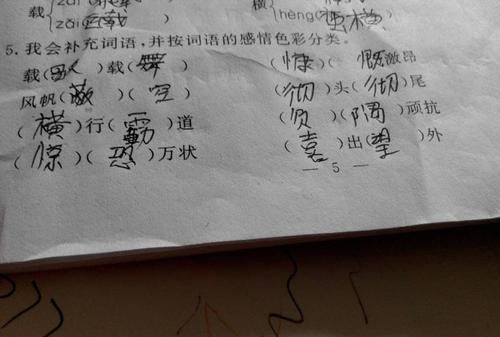 载 zāi 载 横
zǎi 连载 hèng 蛮横
5.我会补充词语,并按词语的感情色彩分类。
载(歌)载(舞) (慷)(慨激昂
风帆(蔽)(空) (彻)头(彻)尾
(横)行(霸)道 (负)(隅)顽抗
(惊)(恐)万状 (喜)出(望)外
— 5 —